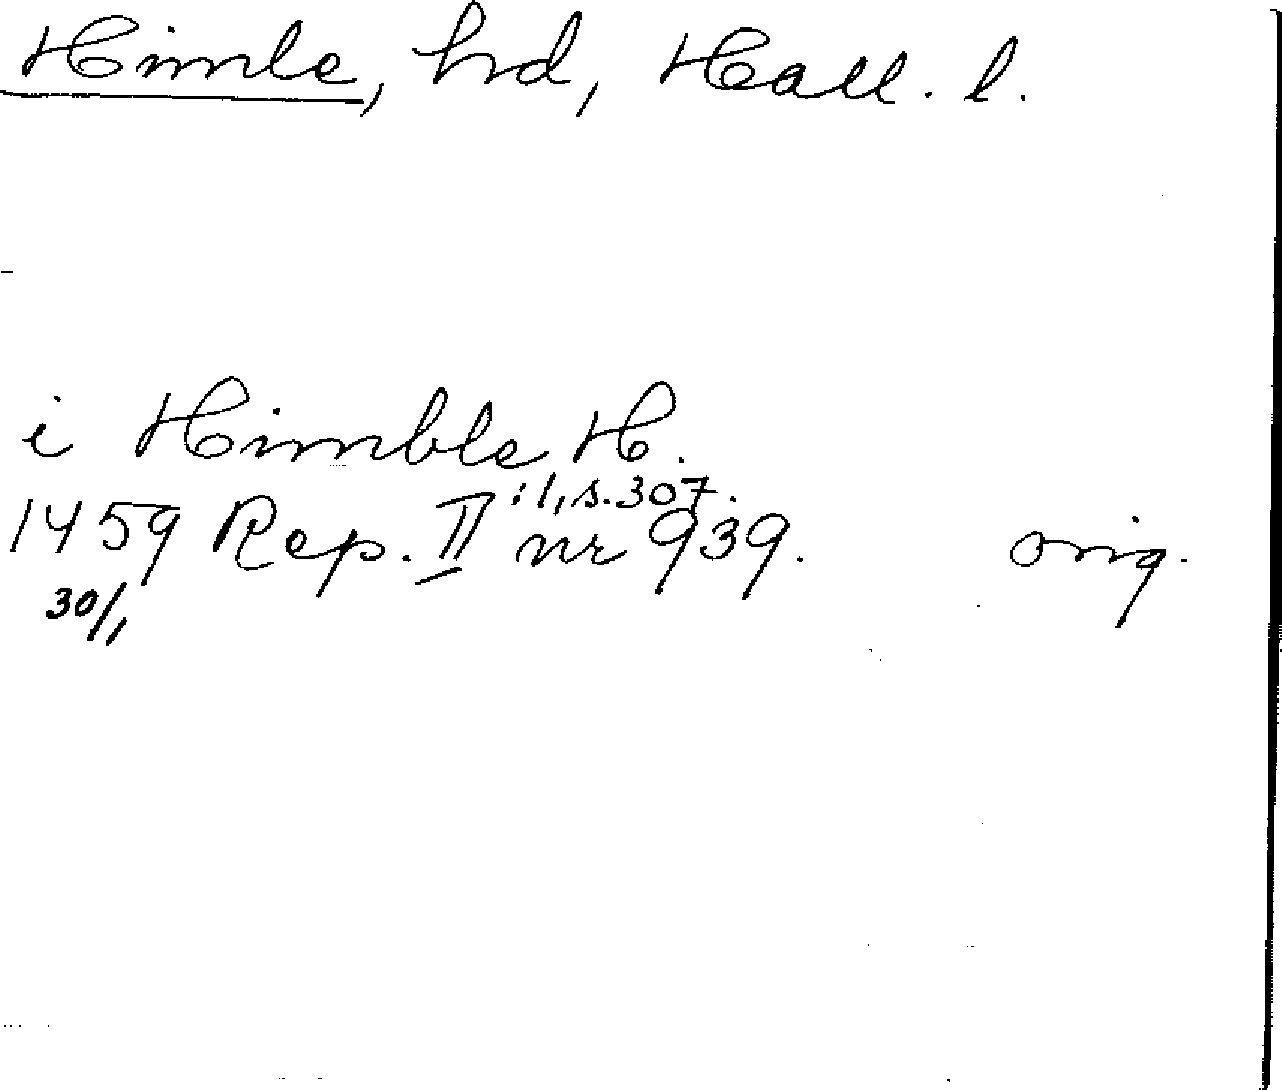 Himle, hd, Hall. l.
i Himble H.
:1, s. 307.
1459 Rep. II nr 939. orig.
30/1